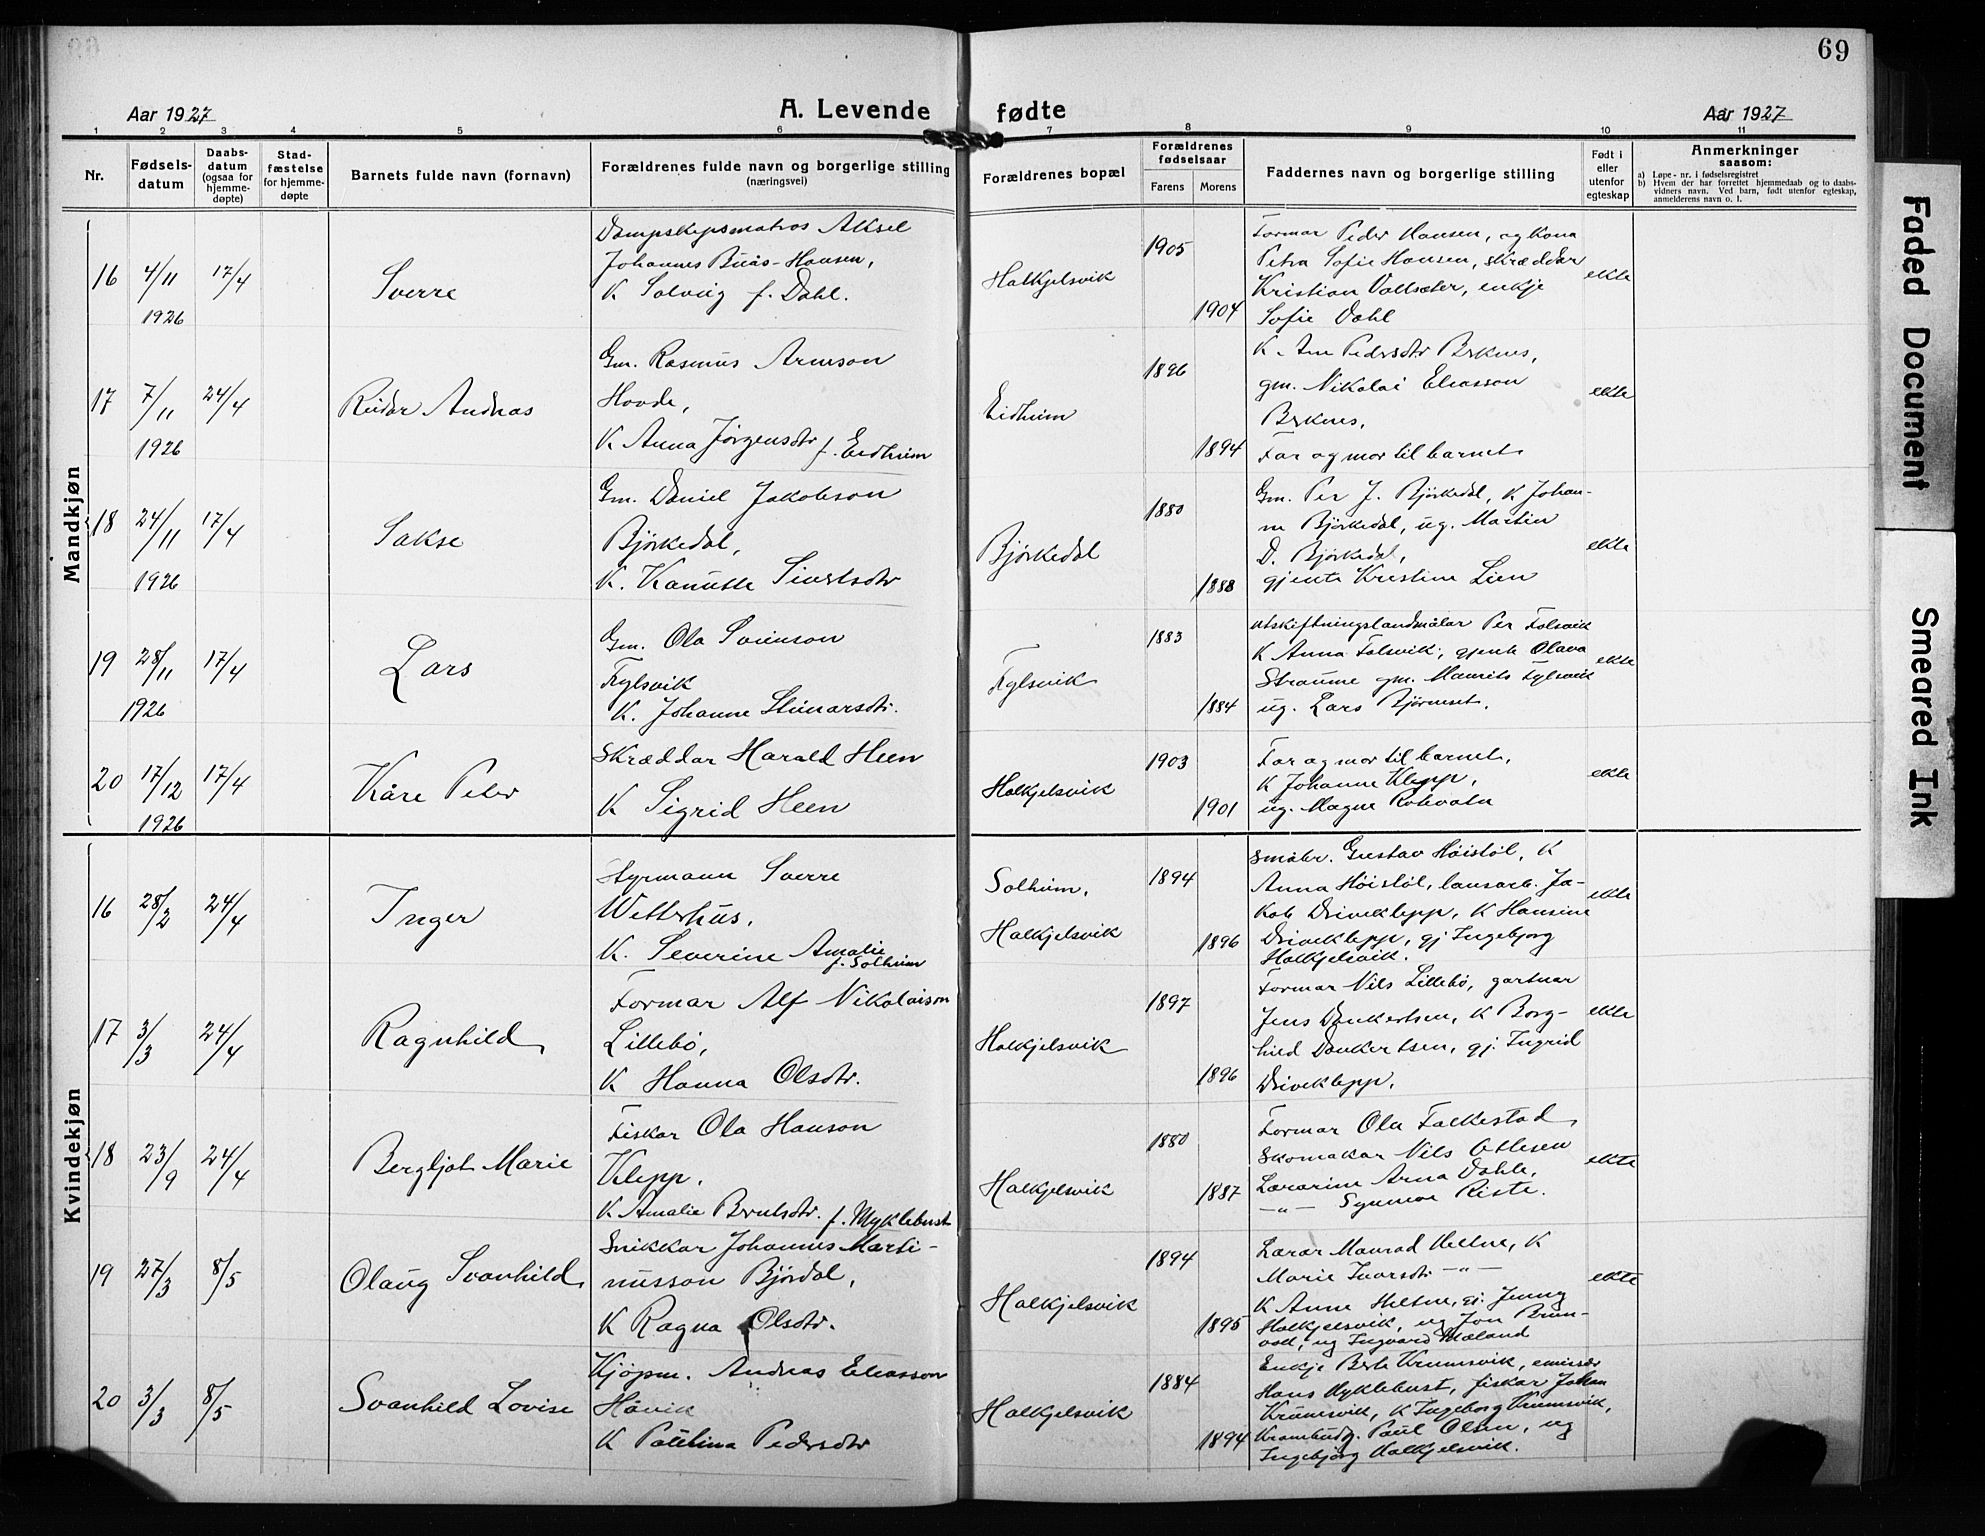 69
Aar 1927
A. Levende fødte
Aar 1927
1 2 3 4 5 6 7 8 9 10 11
Nr.
Fødsels-
datum
Daabs-
datum
(ogsaa for
hjemme-
døpte)
Stad-
fæstelse
for hjemme-
døpte
Barnets fulde navn (fornavn)
Forældrenes fulde navn og borgerlige stilling
(næringsvei)
Forældrenes bopæl
Forældrenes
fødselsaar
Farens Morens
Faddernes navn og borgerlige stilling
Født i
eller
utenfor
egteskap
Anmerkninger
saasom:
a) Løpe-nr. i fødselsregistret
b) Hvem der har forrettet hjemmedaab og to daabs-
vidners navn. Ved barn, født utenfor egteskap,
anmelderens navn o. l.
Mandkjøn
16 4/11 1926 17/4 Sverre
Dampskipsmatros Aksel
Johannes Buås-Hansen,
K Solveig f. Dahl.
Halkjelsvik
1905
1904
Formar Peder Hansen, og kona
Petra Sofie Hansen, skræddar
Kristian Vallsæter, enkje
Sofie Dahl
ekte
17 7/11 1926 24/4 Reidar Andreas
Gm. Rasmus Arneson
Hovde,
K Anna Jørgensdtr f. Eidheim
Eidheim
1896
1894
K. Ane Pedersdtr Berknes,
gm. Nikolai Eliasson
Berknes,
Far og mor til barnet
ekte
18 24/11 1926 17/4 Sakse
Gm. Daniel Jakobson
Bjørkedal,
K. Kanutte Sivertsdtr
Bjørkedal
1880
1888
Gm. Per J. Bjørkedal, K Johan-
ne Bjørkedal, ug. Martin
D. Bjørkedal,
gjente Kristine Lien
ekte
19 28/11 1926 17/4 Lars
Gm. Ola Sveinson
Fylsvik
K. Johanne Steinarsdtr.
Fylsvik
1883
1884
utskiftningslandmålar Per Folsvik
K Anna Folsvik, gjente Olava
Straume gm. Maurits Fylsvik
ug. Lars Bjørneset.
ekte
20 17/12 1926 17/4 Kåre Peter
Skræddar Harald Heen
K Sigrid Heen
Halkjelsvik
1903
1901
Far og mor til barnet,
K Johanne Klepp,
ug. Magne Rotevatn
ekte
Kvindekjøn
16 28/2 24/4 Inger
Styrmann Sverre
Wetterhus,
K. Severine Amalie
f. Solheim
Solheim,
Halkjelsvik
1894
1896
småbr. Gustav Høistøl, K
Anna Høistøl, lausarb. Ja-
kob Driveklepp, K Hansine
Driveklepp, gj Ingebjorg
Halkjelsvik.
ekte
17 3/3 24/4 Ragnhild
Formar Alf Nikolaison
Lillebø,
K Hanna Olsdtr.
Halkjelsvik
1897
1896
Formar Nils Lillebø, gartnar
Jens Dankertsen, K Borg-
hild Dankertsen, gj. Ingrid
Driveklepp.
ekte
18 23/9 24/4 Bergljot Marie
Fiskar Ola Hanson
Klepp,
K Amalie Berntsdtr. f. Myklebust
Halkjelsvik
1880
1887
Formar Ola Falkestad
Skomakar Nils Ottesen
Lærarine Arna Dahle,
—"— Synnøve Riste.
ekte
19 27/3 8/5 Olaug Svanhild
Snikkar Johannes Marti-
nusson Bjørdal,
K Ragna Olsdtr.
Halkjelsvik
1894
1895
Lærar Monrad Heltne, K
Marie Ivarsdtr —"—
K Anne Heltne, gj. Jenny
Halkjelsvik, ug Jon Brun-
voll, ug Ingvard Mæland
ekte
20 3/3 8/5 Svanhild Lovise
Kjøpm. Andreas Eliasson
Håvik
K Paulina Pedersdtr
Halkjelsvik
1884
1894
Enkje Berte Krumsvik, emissær
Hans Myklebust, fiskar Johan
Krumsvik, K Ingeborg Krumsvik,
Krambudg. Paul Olsen, ug
Ingebjørg Halkjelsvik.
Faded Document
Smeared Ink